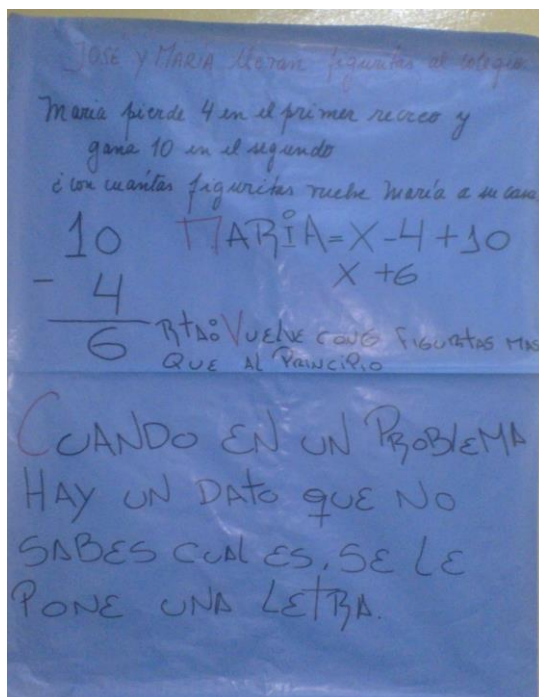 JOSÉ y MARIA llevan figuritas al colegio
Maria pierde 4 en el primer recreo y
gana 10 en el segundo
¿con cuantas figuritas vuelve María a su casa
10
- 4
6
MARIA = X - 4 + 10
X + 6
Rtdo: VUELVE CON 6 FIGURITAS MAS
QUE AL PRINCIPIO
CUANDO EN UN PROBLEMA
HAY UN DATO QUE NO
SABES CUAL ES, SE LE
PONE UNA LETRA.